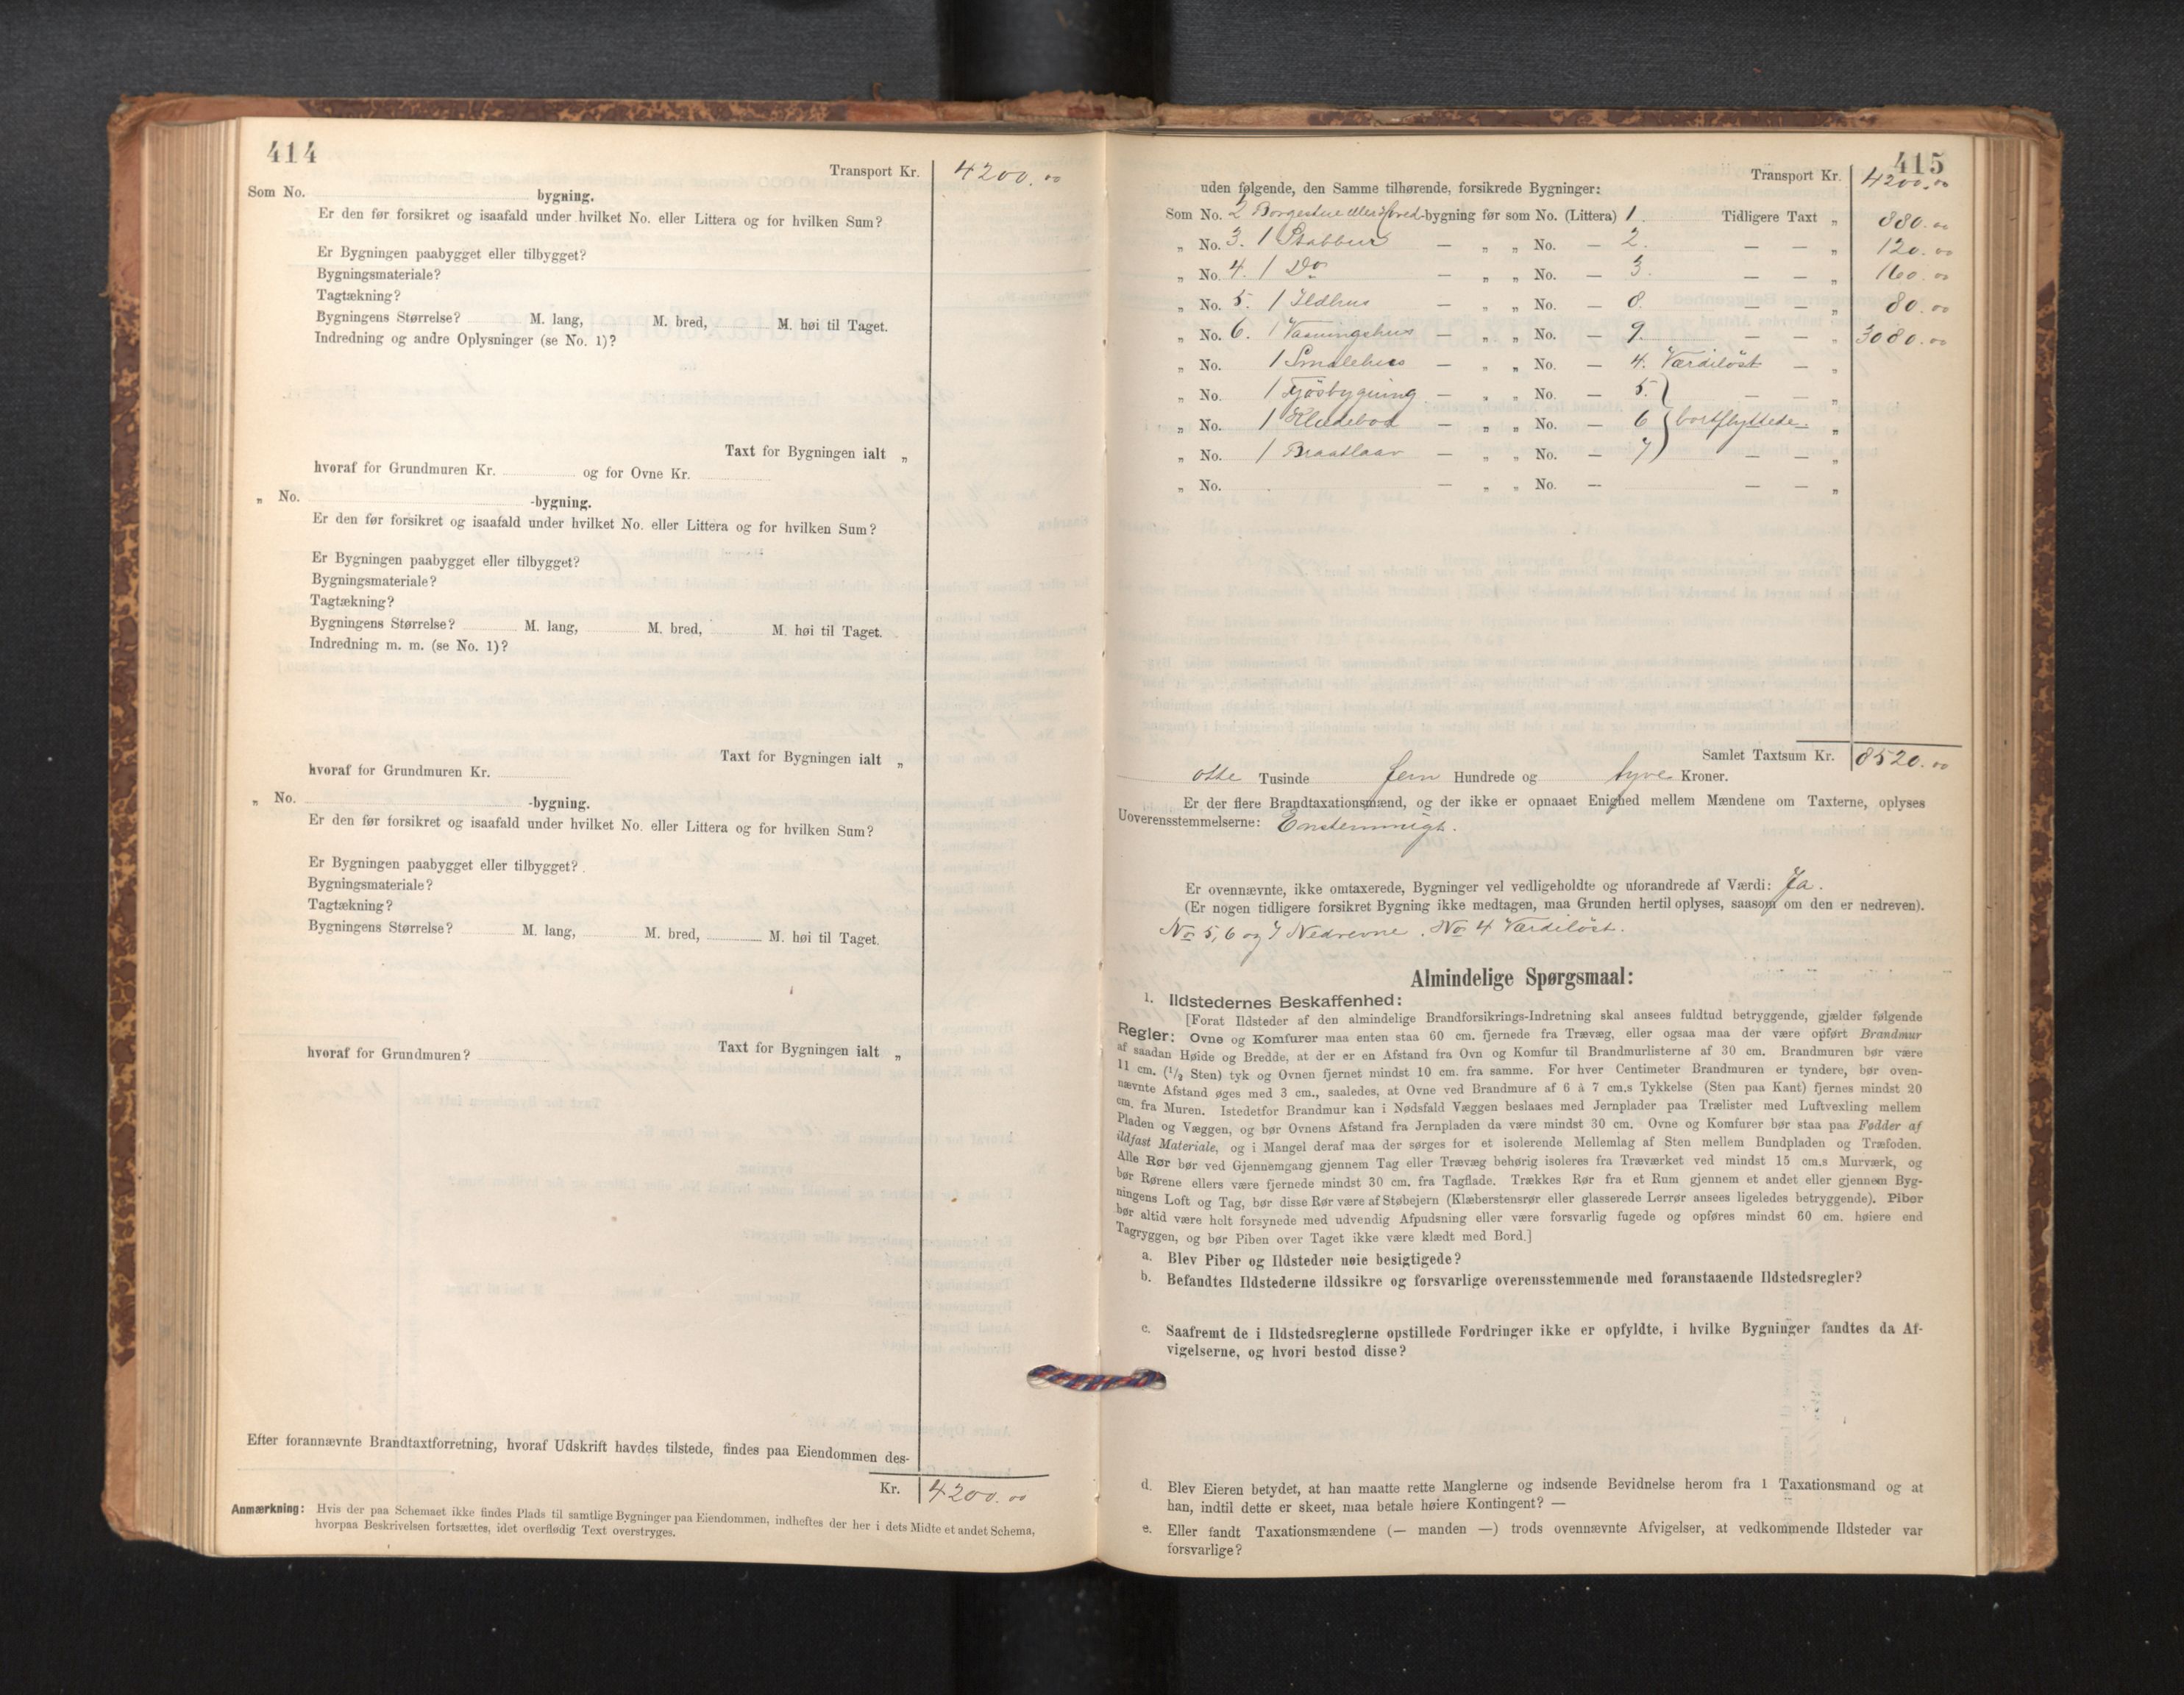 414
Transport Kr. 4200.00
Som No. bygning.
Er den før forsikret og isaafald under hvilket No. eller Littera og for hvilken Sum?
Er Bygningen paabygget eller tilbygget?
Bygningsmateriale?
Tagtækning?
Bygningens Størrelse? M. lang, M. bred, M. høi til Taget.
Indredning og andre Oplysninger (se No. 1)?
Taxt for Bygningen ialt „
hvoraf for Grundmuren Kr. og for Ovne Kr.
„ No. -bygning.
Er den før forsikret og isaafald under hvilket No. eller Littera og for hvilken Sum?
Er Bygningen paabygget eller tilbygget?
Bygningsmateriale?
Tagtækning?
Bygningens Størrelse? M. lang, M. bred, M. høi til Taget.
Indredning m. m. (se No. 1)?
Taxt for Bygningen ialt „
hvoraf for Grundmuren Kr.
„ No. -bygning.
Er den før forsikret og isaafald under hvilket No. eller Littera og for hvilken Sum?
Er Bygningen paabygget eller tilbygget?
Bygningsmateriale?
Tagtækning?
Bygningens Størrelse? M. lang, M. bred, M. høi til Taget.
Taxt for Bygningen ialt „
hvoraf for Grundmuren?
Efter forannævnte Brandtaxtforretning, hvoraf Udskrift havdes tilstede, findes paa Eiendommen des-
Kr. 4200.00
Anmærkning: Hvis der paa Schemaet ikke findes Plads til samtlige Bygninger paa Eiendommen, indheftes der her i dets Midte et andet Schema,
hvorpaa Beskrivelsen fortsættes, idet overflødig Text overstryges.
415
Transport Kr. 4200.00
uden følgende, den Samme tilhørende, forsikrede Bygninger:
Som No. 2 Borgestue -bygning før som No. (Littera) 1. Tidligere Taxt „ 880.00
„ No. 3. 1 Stabbur — „ „ No. — 2. — — „ 120.00
„ No. 4. 1 Do — „ „ No. — 3. — — „ 160.00
„ No. 5. 1 Ildhus — „ „ No. — 8. — — „ 80.00
„ No. 6. 1 Vaaningshus — „ „ No. — 9. — — „ 3080.00
„ No. 1 Smalehus — „ „ No. — 4. Værdiløst — „
„ No. 1 Fjøsbygning — „ „ No. — 5. — — „
„ No. 1 Klædebod — „ „ No. — 6 bortflyttede. „
„ No. 1 Braatlaav — „ „ No. — 7 — — „
„ No. — „ „ No. — — — „
Samlet Taxtsum Kr. 8520.00
otte Tusinde fem Hundrede og tyve Kroner.
Er der flere Brandtaxationsmænd, og der ikke er opnaaet Enighed mellem Mændene om Taxterne, oplyses
Uoverensstemmelserne: Enstemmigt.
Er ovennævnte, ikke omtaxerede, Bygninger vel vedligeholdte og uforandrede af Værdi: Ja.
(Er nogen tidligere forsikret Bygning ikke medtagen, maa Grunden hertil oplyses, saasom om den er nedreven).
No 5, 6 og 7 Nedrevne. No 4 Værdiløst.
Almindelige Spørgsmaal:
1. Ildstedernes Beskaffenhed:
[Forat Ildsteder af den almindelige Brandforsikrings-Indretning skal ansees fuldtud betryggende, gjælder følgende
Regler: Ovne og Komfurer maa enten staa 60 cm. fjernede fra Trævæg, eller ogsaa maa der være opført Brandmur
af saadan Høide og Bredde, at der er en Afstand fra Ovn og Komfur til Brandmurlisterne af 30 cm. Brandmuren bør være
11 cm. (1/2 Sten) tyk og Ovnen fjernet mindst 10 cm. fra samme. For hver Centimeter Brandmuren er tyndere, bør oven-
nævnte Afstand øges med 3 cm., saaledes, at Ovne ved Brandmure af 6 à 7 cm.s Tykkelse (Sten paa Kant) fjernes mindst 20
cm. fra Muren. Istedetfor Brandmur kan i Nødsfald Væggen beslaaes med Jernplader paa Trælister med Luftvexling mellem
Pladen og Væggen, og bør Ovnens Afstand fra Jernpladen da være mindst 30 cm. Ovne og Komfurer bør staa paa Fødder af
ildfast Materiale, og i Mangel deraf maa der sørges for et isolerende Mellemlag af Sten mellem Bundpladen og Træfoden.
Alle Rør bør ved Gjennemgang gjennem Tag eller Trævæg behørig isoleres fra Træværket ved mindst 15 cm.s Murværk, og
bør Rørene ellers være fjernede mindst 30 cm. fra Tagflade. Trækkes Rør fra et Rum gjennem et andet eller gjennem Byg-
ningens Loft og Tag, bør disse Rør være af Støbejern (Klæberstensrør eller glasserede Lerrør ansees ligeledes betryggende). Piber
bør altid være helt forsynede med udvendig Afpudsning eller være forsvarlig fugede og opføres mindst 60 cm. høiere end
Tagryggen, og bør Piben over Taget ikke være klædt med Bord.]
a. Blev Piber og Ildsteder nøie besigtigede?
b. Befandtes Ildstederne ildssikre og forsvarlige overensstemmende med foranstaaende Ildstedsregler?
c. Saafremt de i Ildstedsreglerne opstillede Fordringer ikke er opfyldte, i hvilke Bygninger fandtes da Af-
vigelserne, og hvori bestod disse?
d. Blev Eieren betydet, at han maatte rette Manglerne og indsende Bevidnelse herom fra 1 Taxationsmand og at
han, indtil dette er skeet, maa betale høiere Kontingent? —
e. Eller fandt Taxationsmændene (— manden —) trods ovennævnte Afvigelser, at vedkommende Ildsteder var
forsvarlige?